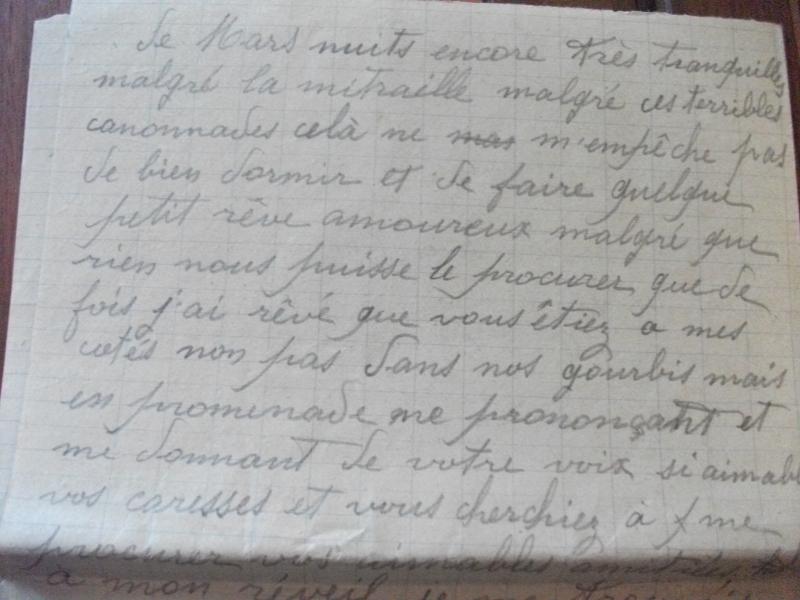 de Mars nuits encore très tranquilles
malgré la mitraille malgré ces terribles
canonnades celà ne mas m'empêche pas
de bien dormir et de faire quelque
petit rêve amoureux malgré que
rien nous puisse le procurer que de
fois j'ai rêvé que vous êtiez a mes
cotés non pas dans nos gourbis mais
en promenade me prononçant et
me donnant de votre voix si aimab
vos caresses et vous cherchiez à me
procurer vos aimables
a mon réveil je me